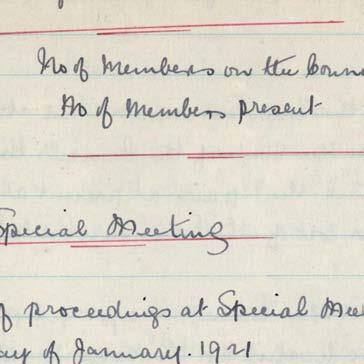 No of Members on the Coun
No of Members present
Special Meeting
of proceedings at Special Mee
ay of January. 1921